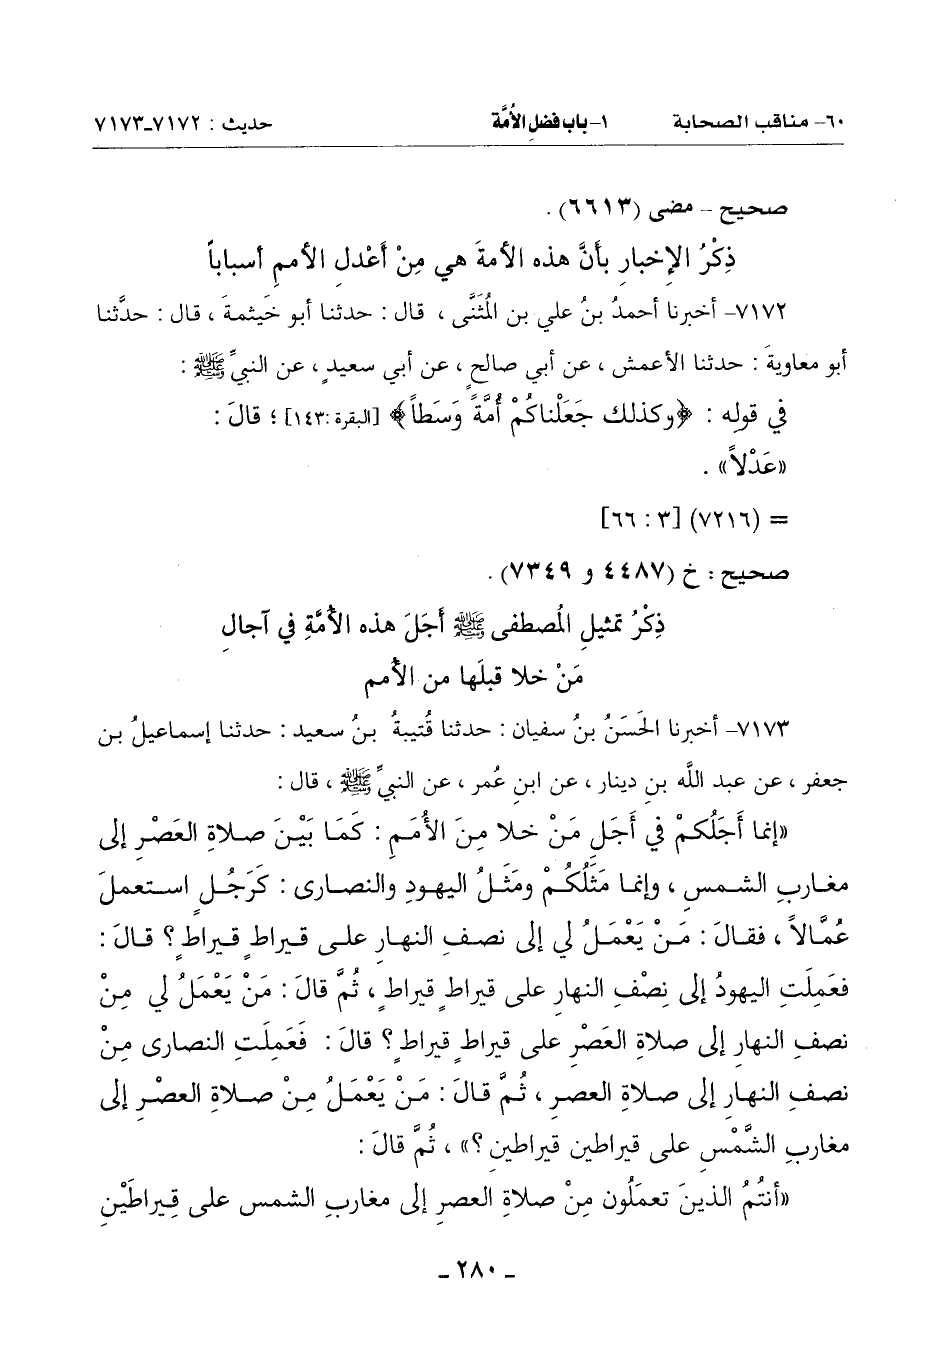 ٦٠- مناقب الصحابة ١- باب فضل الأُمَّة حديث : ٧١٧٢-٧١٧٣
صحيح - مضى (٦٦١٣) .
ذِكْرُ الإخبار بأَنَّ هذه الأمةَ هي مِنْ أَعْدلِ الأممِ أسباباً
٧١٧٢- أخبرنا أحمدُ بنُ علي بن المُثَنَّى ، قال : حدثنا أبو خَيثمةَ ، قال : حدَّثنا
أبو معاويةَ : حدثنا الأعمش ، عن أبي صالحٍ ، عن أبي سعيدٍ ، عن النبيِّ ﷺ :
في قولِه : ﴿وكذلك جَعَلْناكُمْ أُمَّةً وَسَطاً﴾ [البقرة :١٤٣] ؛ قالَ :
«عَدْلاً» .
= (٧٢١٦) [٣ : ٦٦]
صحيح : خ (٤٤٨٧ و ٧٣٤٩) .
ذِكْرُ تمثيلِ المُصطفى ﷺ أَجَلَ هذه الأُمَّةِ في آجالِ
مَنْ خلا قبلَها من الأُمم
٧١٧٣- أخبرنا الحَسَنُ بنُ سفيان : حدثنا قُتيبةُ بنُ سعيد : حدثنا إسماعيلُ بن
جعفر ، عن عبد اللَّه بنِ دينار ، عن ابنِ عُمر ، عن النبيِّ ﷺ ، قال :
«إنما أَجَلُكُمْ في أَجَلِ مَنْ خلا مِنَ الأُمَمِ : كَمَا بَيْنَ صلاةِ العَصْرِ إلى
مغاربِ الشمسِ ، وإنما مَثَلُكُمْ ومَثَلُ اليهودِ والنصارى : كَرَجُلٍ استعملَ
عُمَّالاً ، فقالَ : مَنْ يَعْمَلُ لي إلى نصفِ النهارِ على قيراطٍ قيراطٍ ؟ قالَ :
فعَمِلَتِ اليهودُ إلى نِصْفِ النهارِ على قيراطٍ قيراطٍ ، ثُمَّ قالَ : مَنْ يَعْمَلُ لي مِنْ
نصفِ النهارِ إلى صلاةِ العَصْرِ على قيراطٍ قيراطٍ ؟ قالَ : فَعَمِلَتِ النصارى مِنْ
نصفِ النهارِ إلى صلاةِ العصرِ ، ثُمَّ قالَ : مَنْ يَعْمَلُ مِنْ صلاةِ العصْرِ إلى
مغاربِ الشَّمْسِ على قيراطينِ قيراطينِ ؟» ، ثُمَّ قالَ :
«أنتُمُ الذينَ تعمَلُون مِنْ صلاةِ العصرِ إلى مغاربِ الشمسِ على قِيراطَيْنِ
- ٢٨٠ -